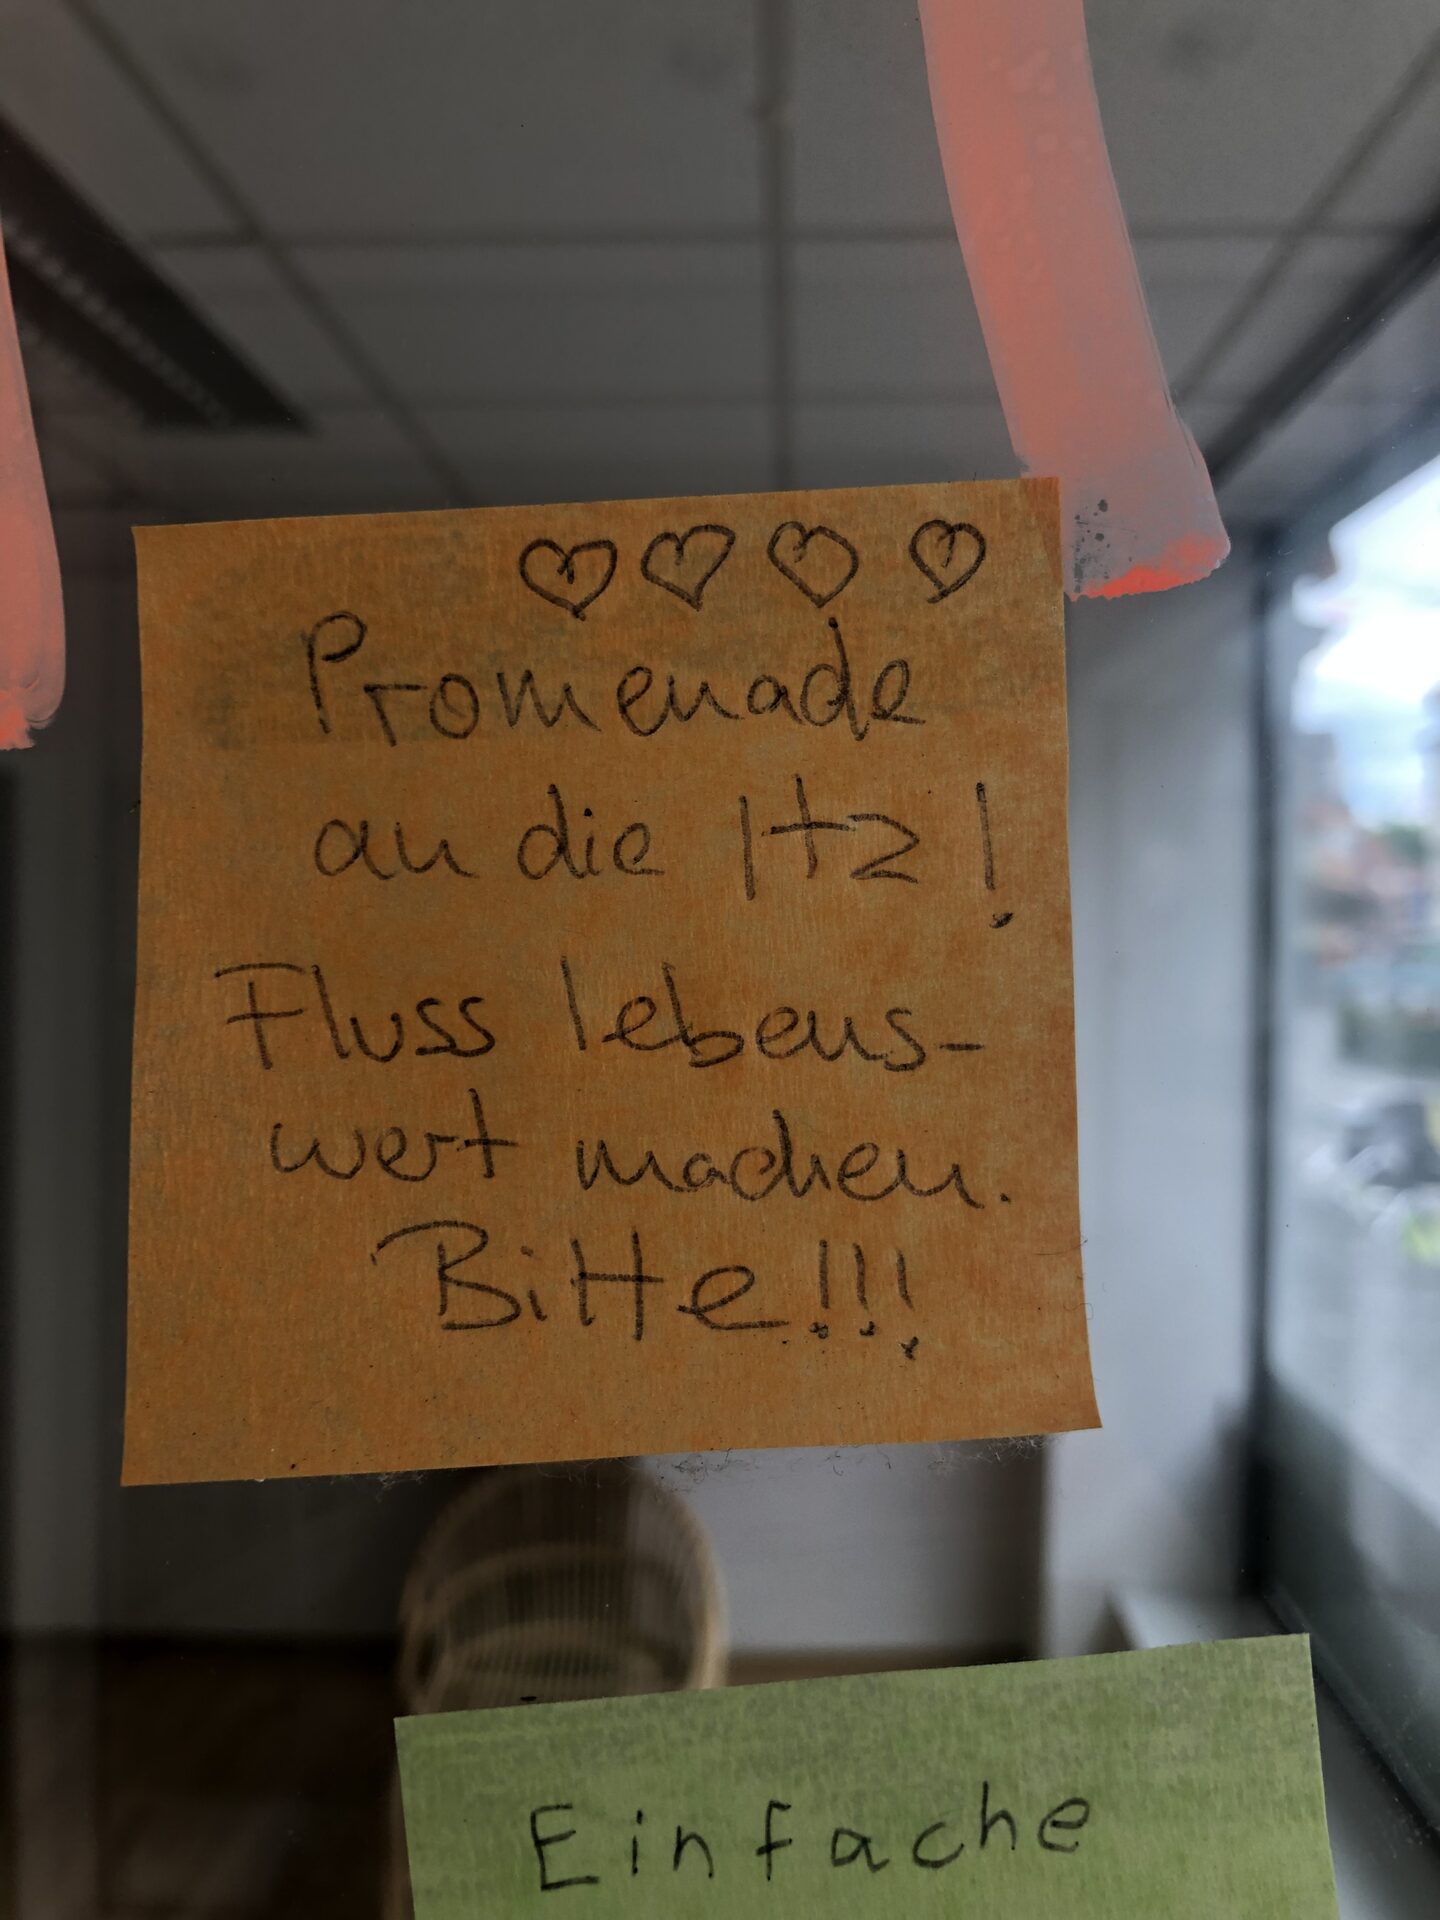 ♡ ♡ ♡ ♡
Promenade
an die Itz!
Fluss lebens-
wert machen.
Bitte!!!
Einfache